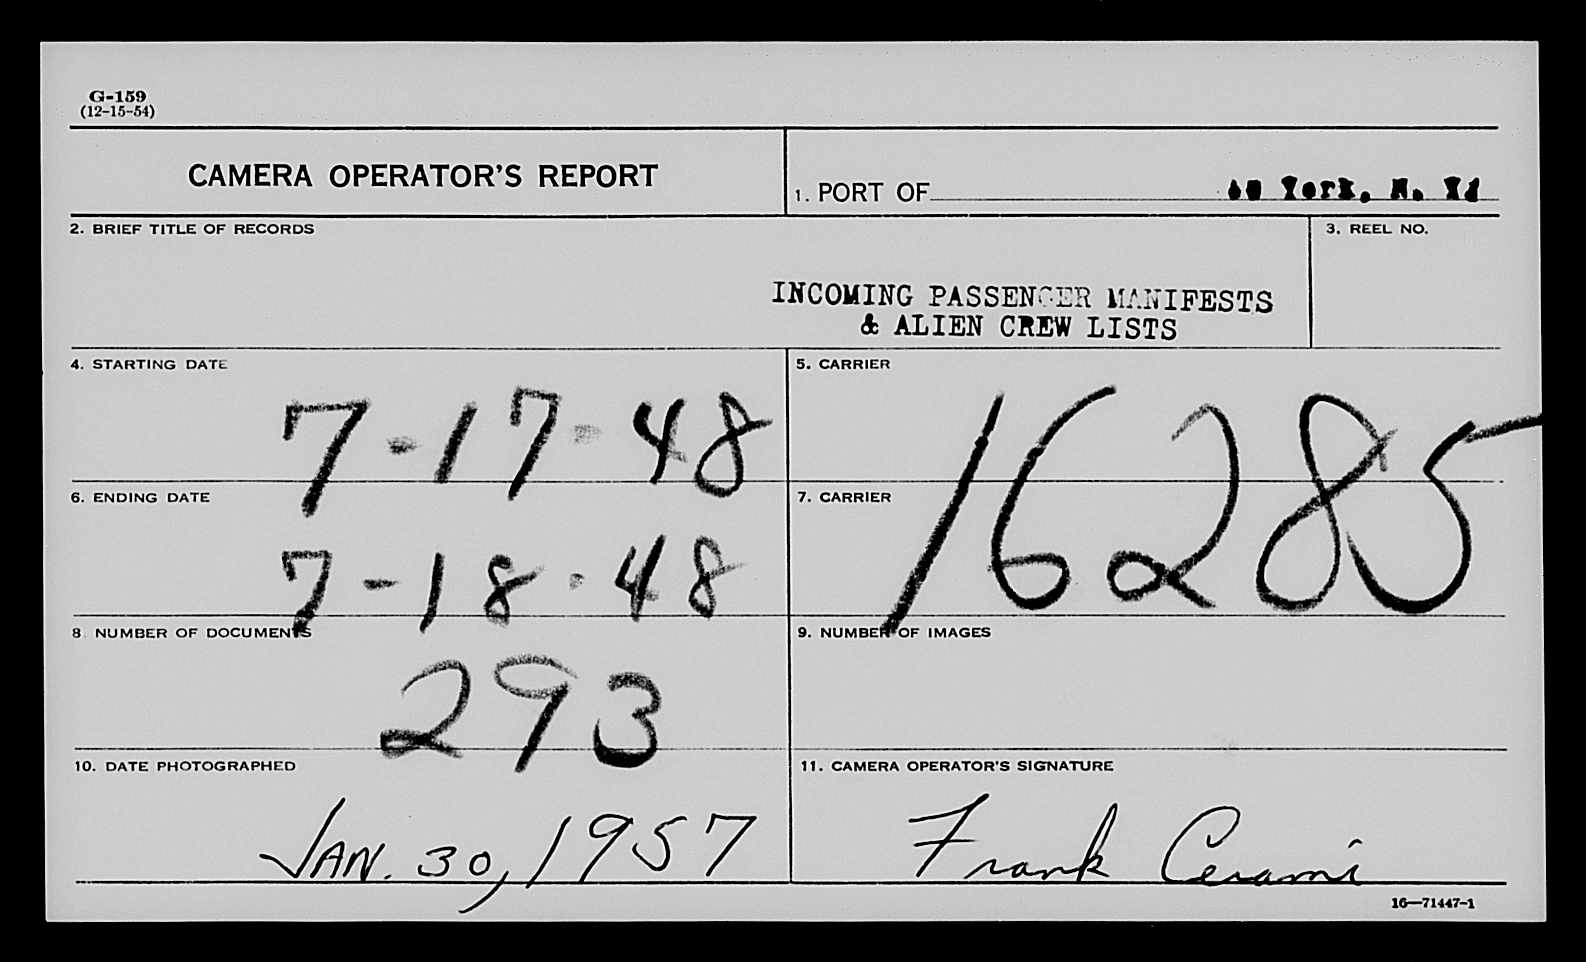 G-159
(12-15-54)
CAMERA OPERATOR'S REPORT
1. PORT OF York, N. Y
2. BRIEF TITLE OF RECORDS
3. REEL NO.
INCOMING PASSENGER MANIFESTS
& ALIEN CREW LISTS
4. STARTING DATE
7-17-48
5. CARRIER
16285
6. ENDING DATE
7-18-48
7. CARRIER
8. NUMBER OF DOCUMENTS
293
9. NUMBER OF IMAGES
10. DATE PHOTOGRAPHED
JAN. 30, 1957
11. CAMERA OPERATOR'S SIGNATURE
Frank Cerami
16—71447-1